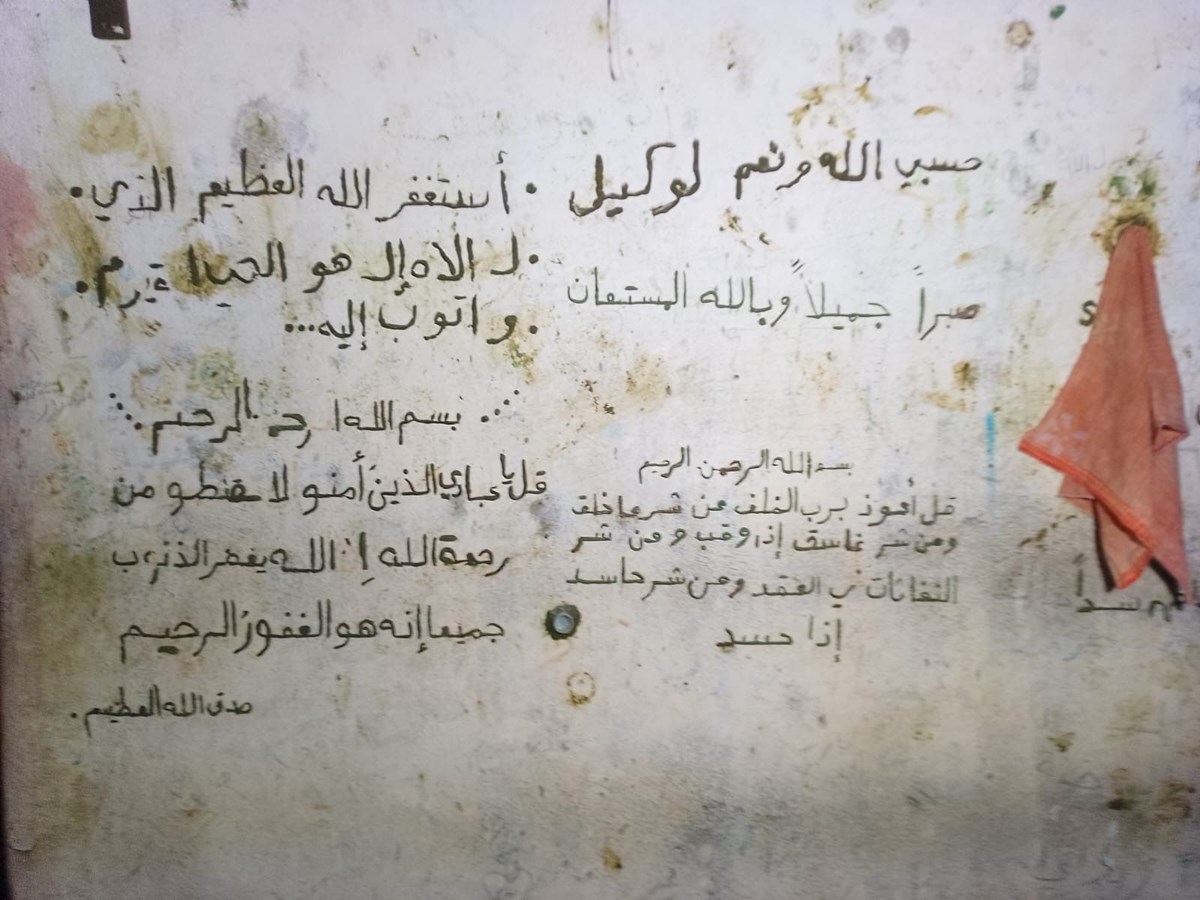 حسبي الله ونعم لوكيل
صبراً جميلاً وبالله المستعان
بسم الله الرحمن الرحيم
قل أعوذ برب الفلف من شر ما خلق
ومن شر غاسق إذا وقب ومن شر
النفاثات في العقد ومن شر حاسد
إذا حسد
• أستغفر الله العظيم الذي •
• لا الاه إلا هو الحي
• و اتوب إليه...
بسم الله الرحيم
قل يا عبادي الذين أمنو لا تقنطو من
رحمة الله إن الله يغفر الذنوب
جميعا إنه هو الغفورُ الرحيم
صدق الله العظيم .